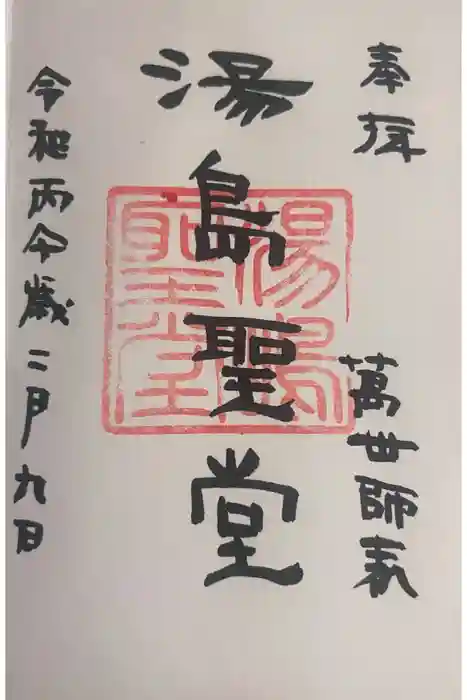 奉拝 萬世師表
湯島聖堂
令和丙午歳二月九日
湯島
聖堂